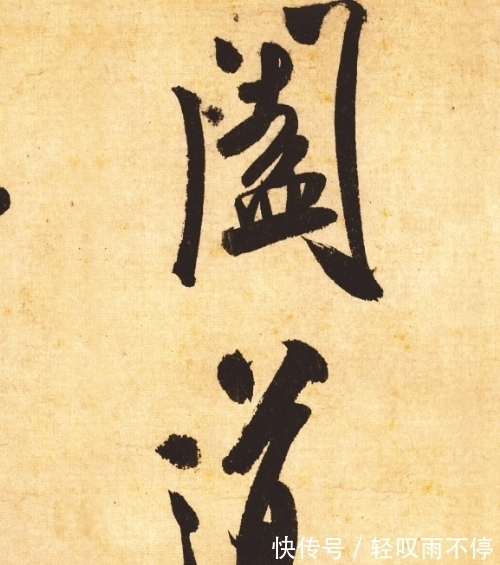 闔
道
快传号/轻叹雨不停